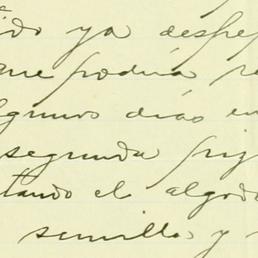 ido ya despre
que podria re
lgunos dias en
segunda pri
tando el algodo
semilla y